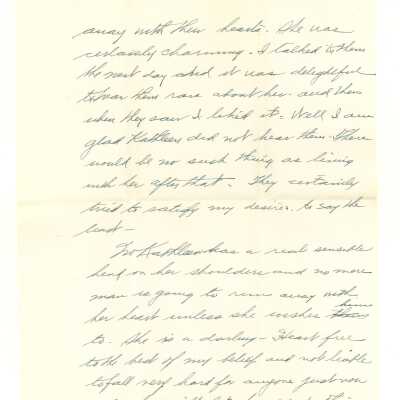 away with their hearts. She was
certainly charming. I talked to them
the next day and it was delightful
to hear them rave about her. and then
when they saw I liked it - Well I am
glad Kathleen did not hear them. There
would be no such thing as living
with her after that. They certainly
tried to satisfy my desires. to say the
least -
No Kathleen has a real sensible
head on her shoulders and no mere
man is going to run away with
her heart unless she wishes him
to. She is a darling - Heart free
to the best of my belief and not liable
to fall very hard for anyone just now